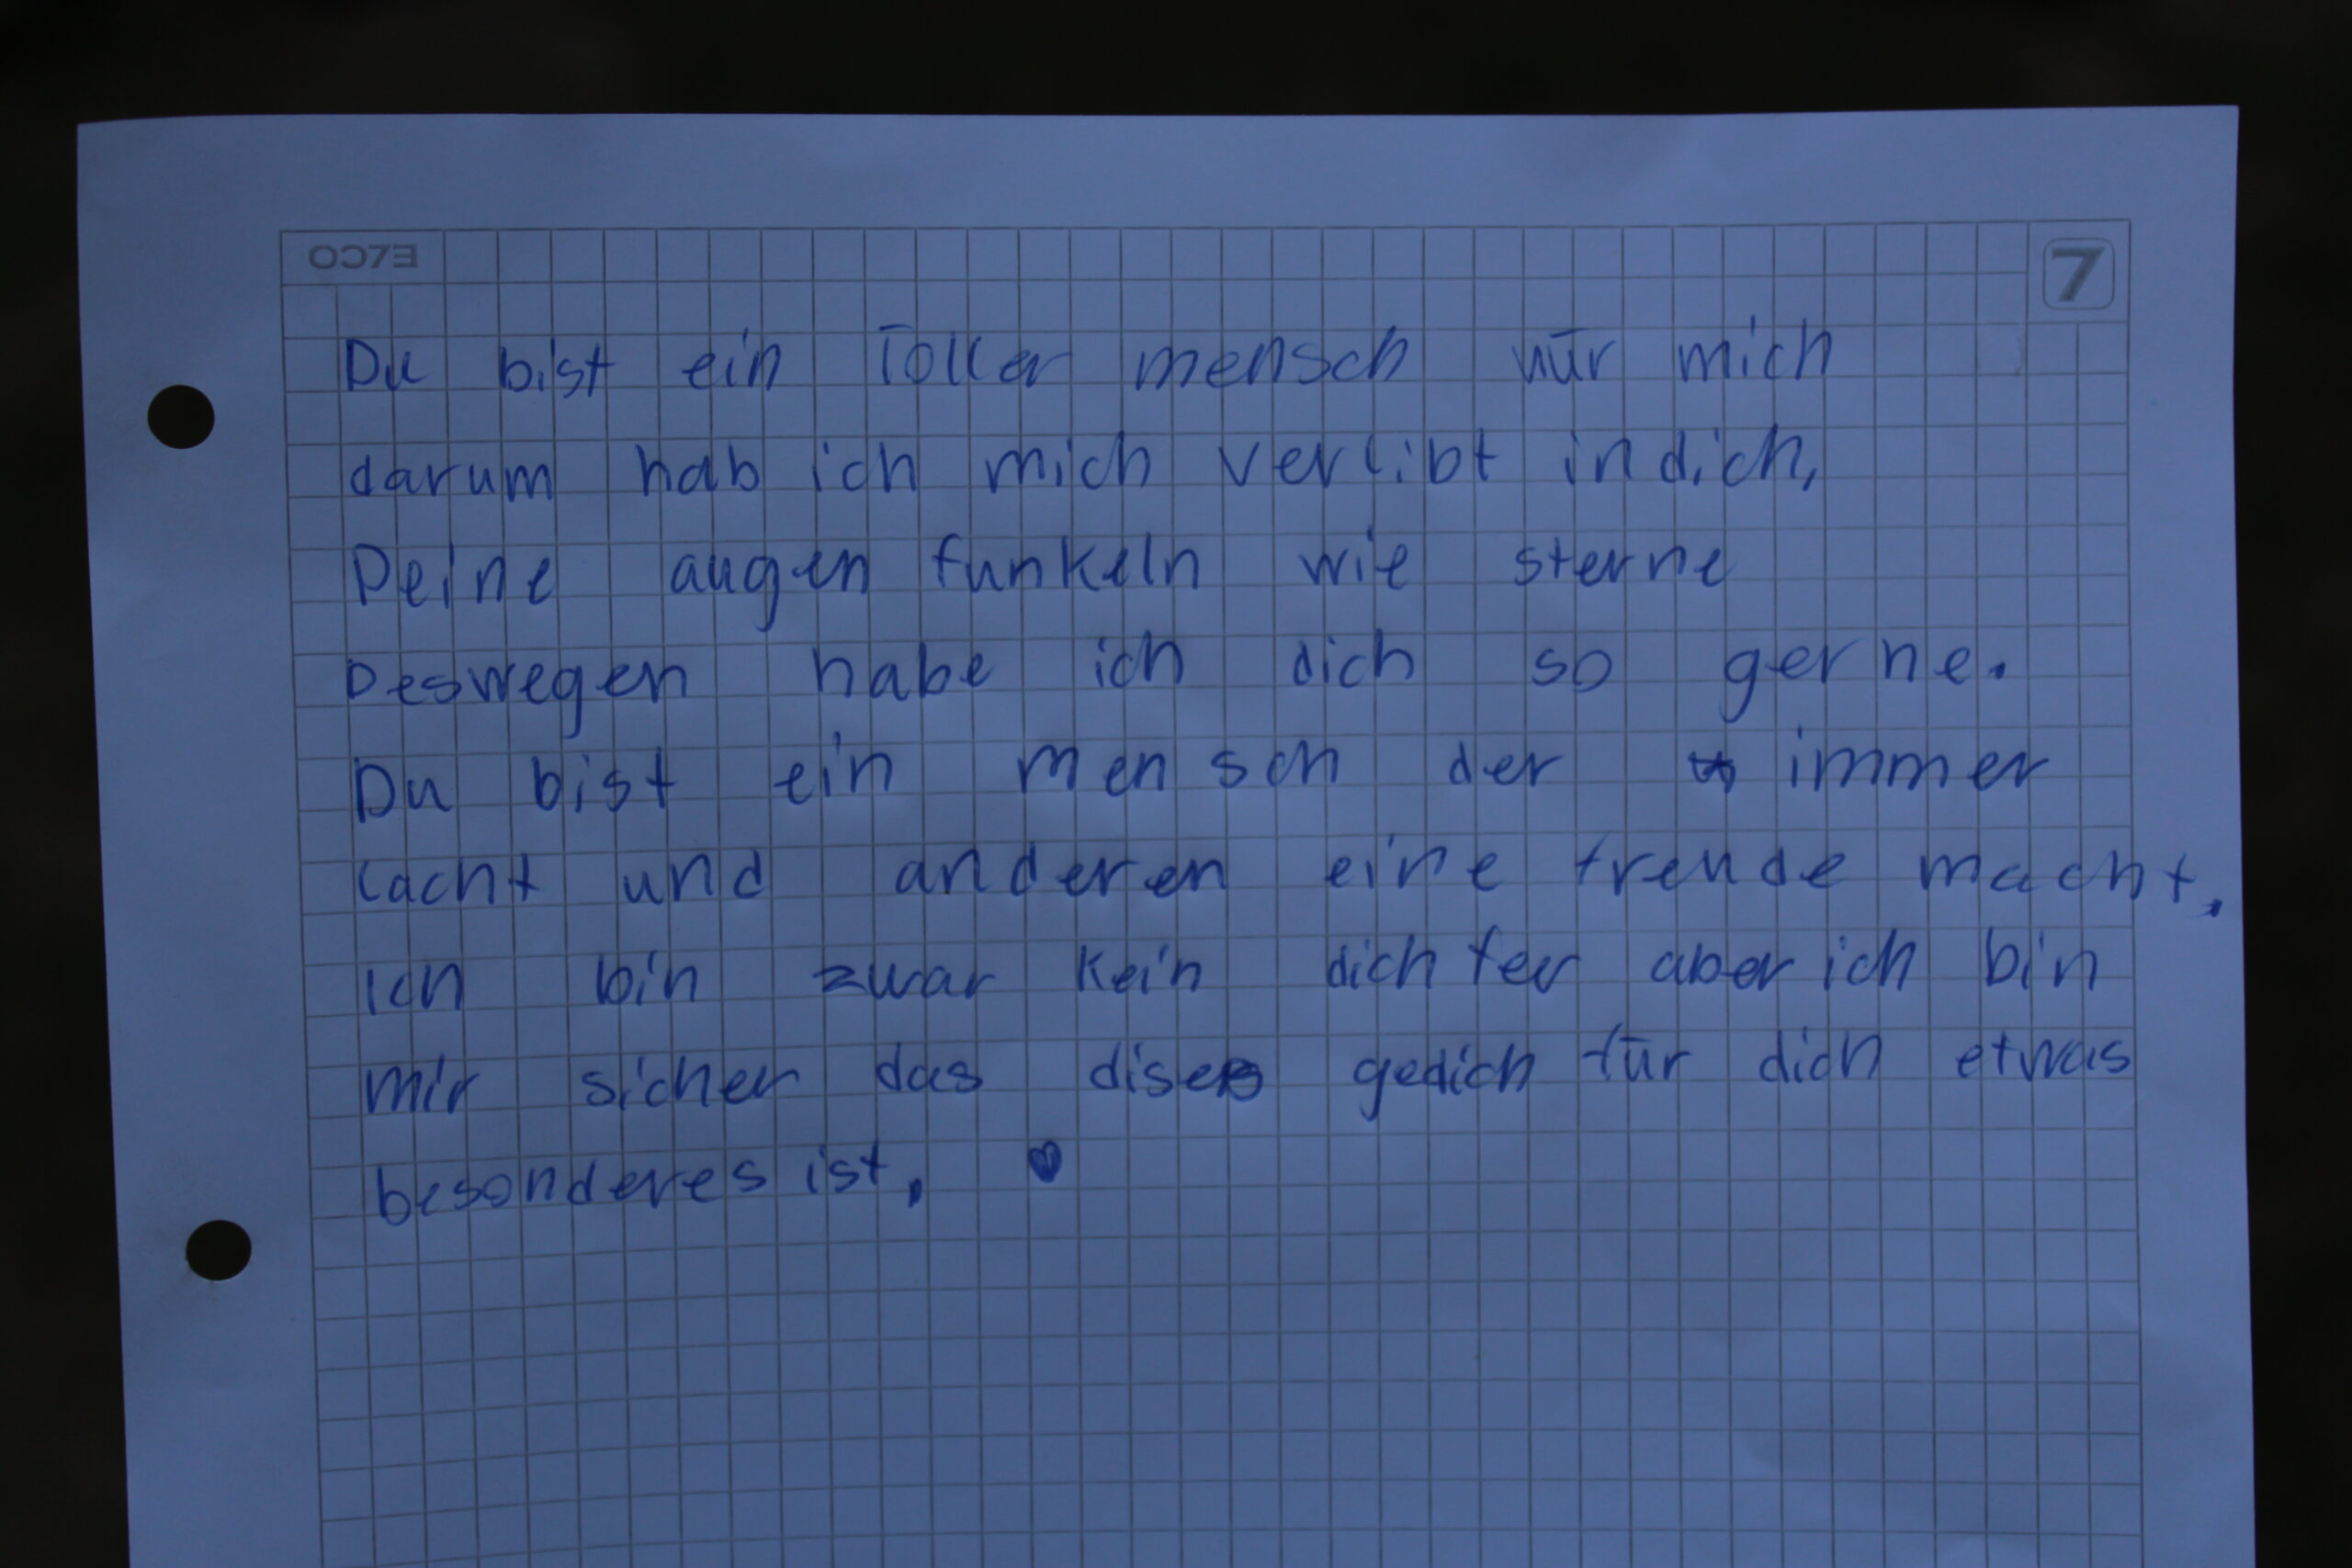 OCZE 7
Du bist ein Toller mensch nūr mich
darum hab ich mich verlibt in dich,
Deine augen funkeln wie sterne
Deswegen habe ich dich so gerne.
Du bist ein mensch der immer
lacht und anderen eine freude macht,
ich bin zwar kein dichter aber ich bin
mir sicher das dises gedich für dich etwas
besonderes ist, ♥